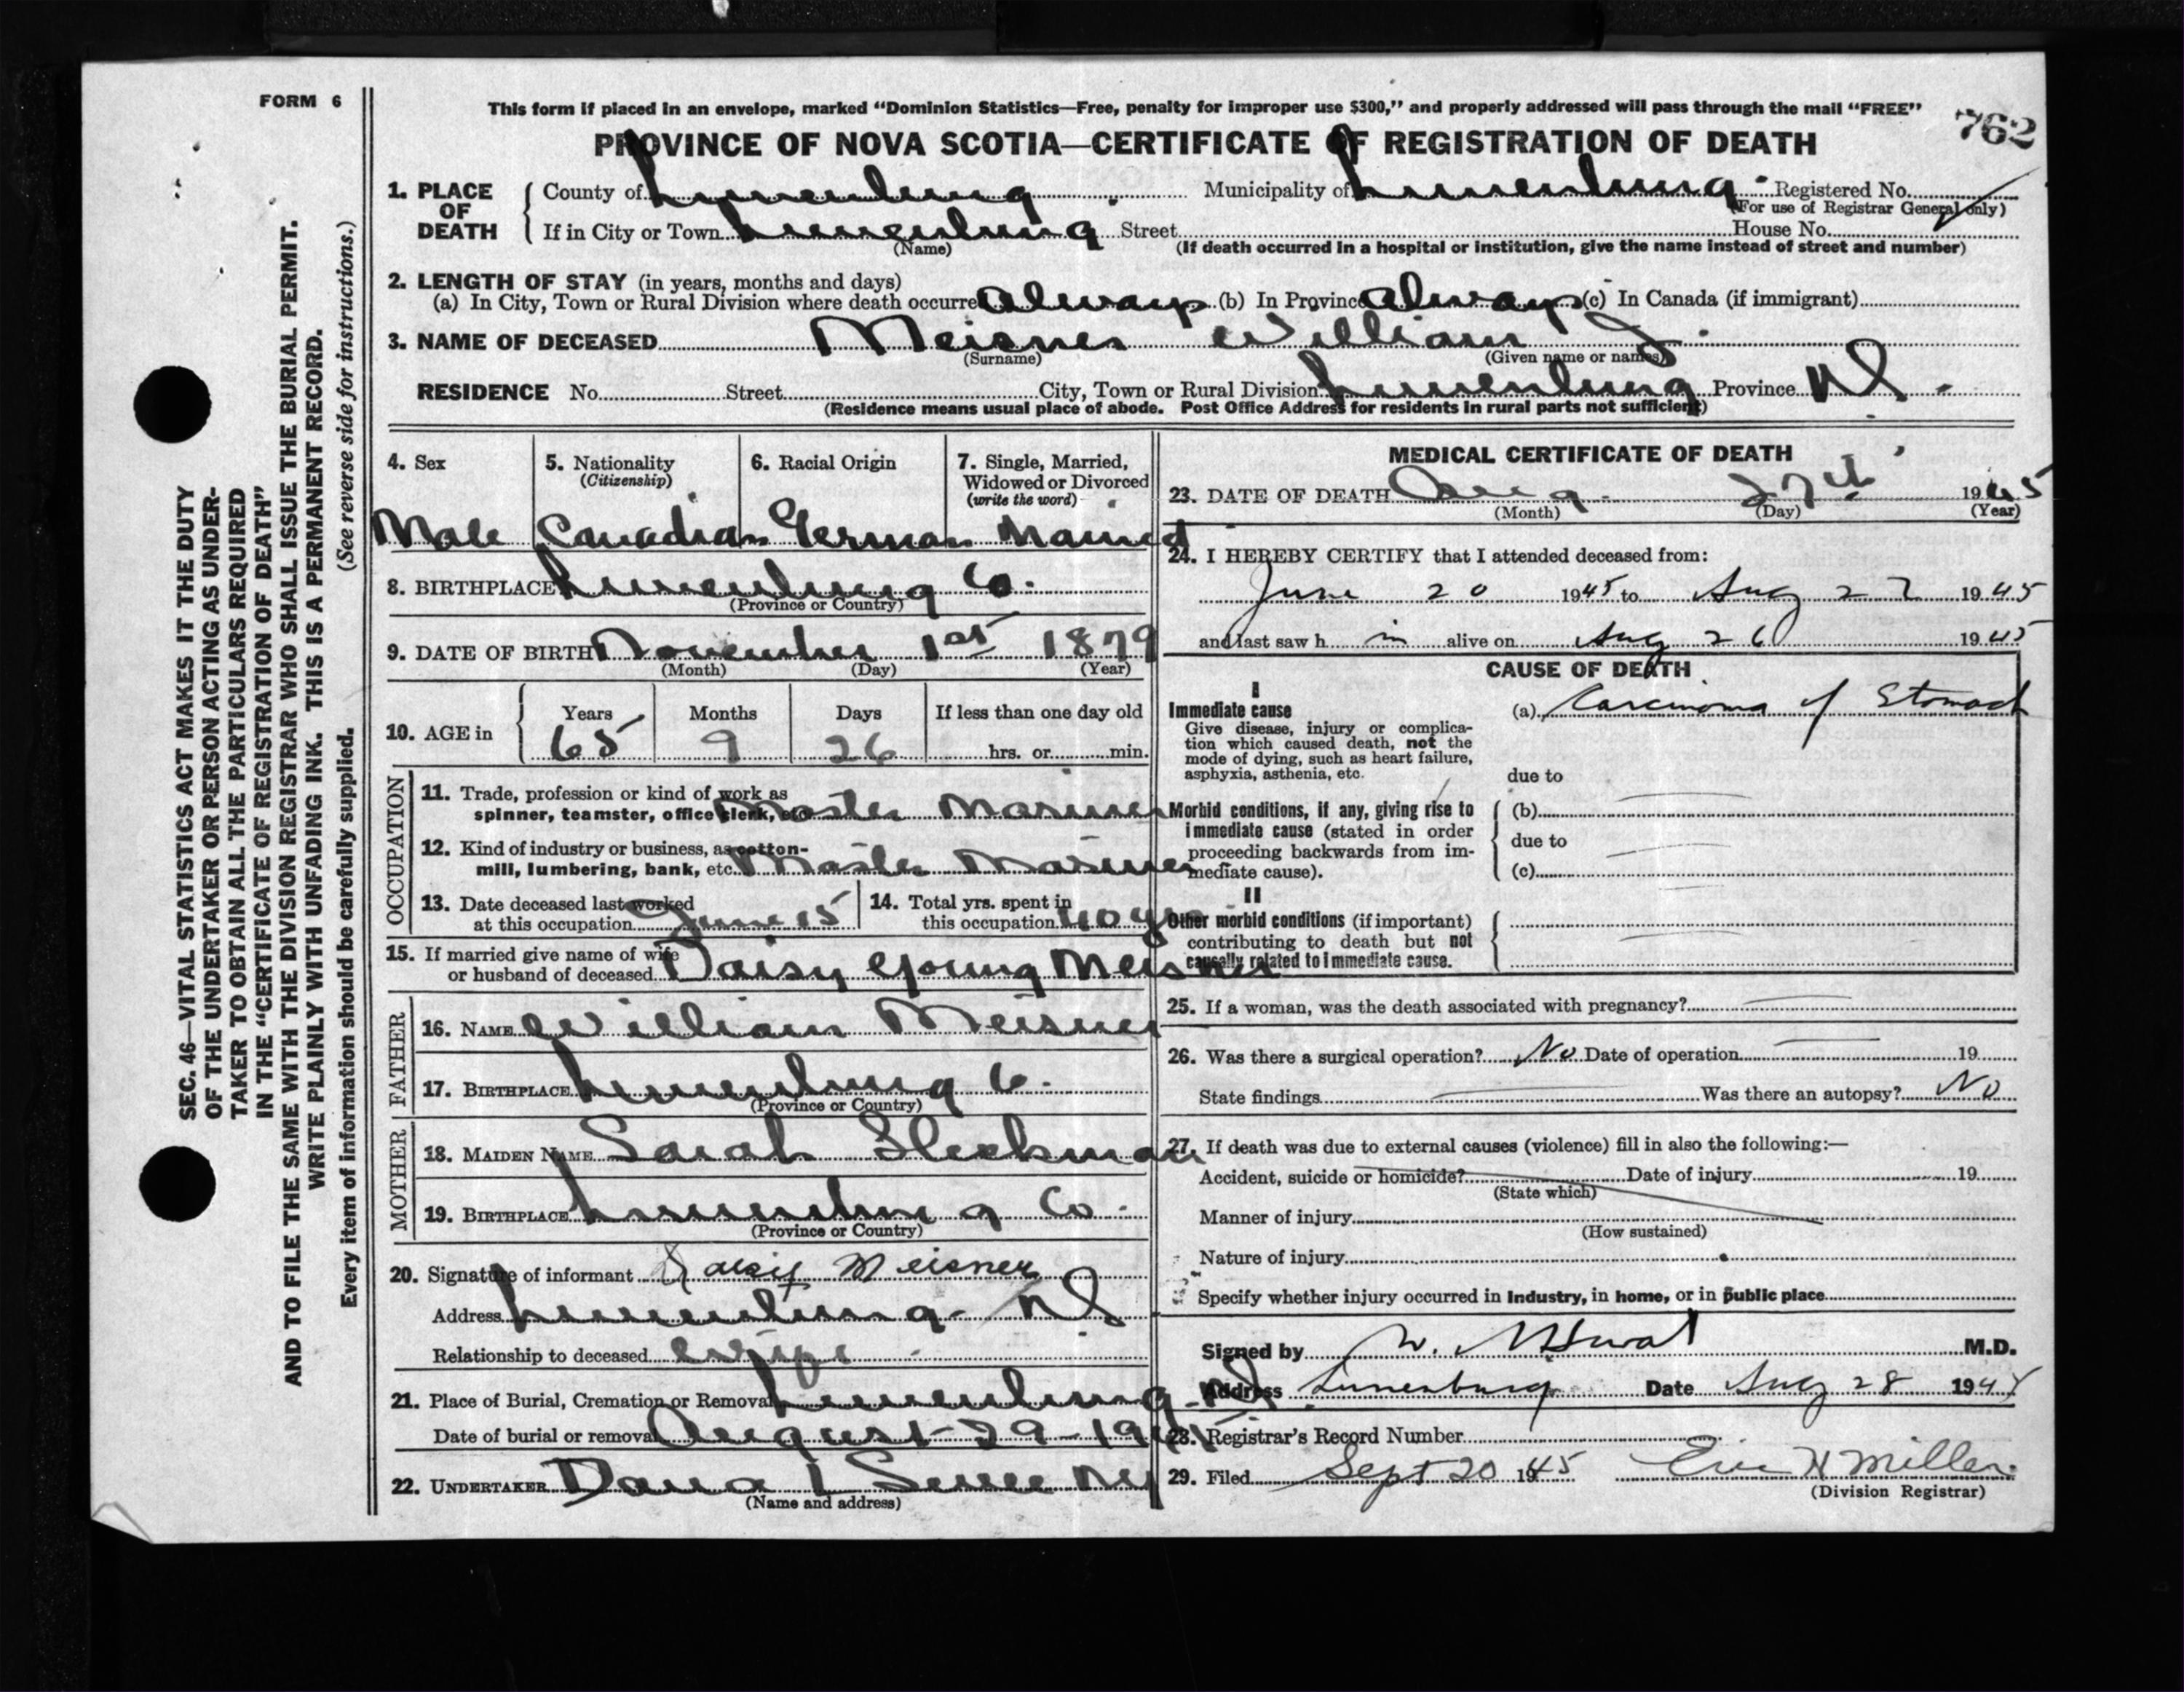 FORM 6
This form if placed in an envelope, marked “Dominion Statistics—Free, penalty for improper use $300,” and properly addressed will pass through the mail “FREE”
762
PROVINCE OF NOVA SCOTIA—CERTIFICATE OF REGISTRATION OF DEATH
1. PLACE OF DEATH
County of Lunenburg. Municipality of Lunenburg. Registered No.
(For use of Registrar General only)
If in City or Town Lunenburg Street House No.
(Name) (If death occurred in a hospital or institution, give the name instead of street and number)
2. LENGTH OF STAY (in years, months and days)
(a) In City, Town or Rural Division where death occurre always (b) In Province always (c) In Canada (if immigrant)
3. NAME OF DECEASED Meisner William J.
(Surname) (Given name or names)
RESIDENCE No. Street City, Town or Rural Division Lunenburg Province N.S.
(Residence means usual place of abode. Post Office Address for residents in rural parts not sufficient)
4. Sex
Male
5. Nationality
(Citizenship)
Canadian
6. Racial Origin
German
7. Single, Married,
Widowed or Divorced
(write the word)
Married
8. BIRTHPLACE Lunenburg Co.
(Province or Country)
9. DATE OF BIRTH November 1st 1879
(Month) (Day) (Year)
10. AGE in
Years Months Days If less than one day old
65 9 26 hrs. or min.
OCCUPATION
11. Trade, profession or kind of work as
spinner, teamster, office clerk, etc. Master Mariner
12. Kind of industry or business, as cotton-
mill, lumbering, bank, etc. Master Mariner
13. Date deceased last worked
at this occupation June 15
14. Total yrs. spent in
this occupation 40 yrs
15. If married give name of wife
or husband of deceased Daisy Young Meisner
FATHER
16. NAME William Meisner
17. BIRTHPLACE Lunenburg Co.
(Province or Country)
MOTHER
18. MAIDEN NAME Sarah Fleckman
19. BIRTHPLACE Lunenburg Co.
(Province or Country)
20. Signature of informant Daisy Meisner
Address Lunenburg N.S.
Relationship to deceased Wife
21. Place of Burial, Cremation or Removal Lunenburg N.S.
Date of burial or removal August 29-194
22. UNDERTAKER Dana L
(Name and address)
MEDICAL CERTIFICATE OF DEATH
23. DATE OF DEATH Aug. 27th 1945
(Month) (Day) (Year)
24. I HEREBY CERTIFY that I attended deceased from:
June 20 1945 to Aug 27 1945
and last saw h im alive on Aug 26 1945
CAUSE OF DEATH
I
Immediate cause
Give disease, injury or complica-
tion which caused death, not the
mode of dying, such as heart failure,
asphyxia, asthenia, etc.
(a) Carcinoma of Stomach
due to
Morbid conditions, if any, giving rise to
immediate cause (stated in order
proceeding backwards from im-
mediate cause).
(b)
due to
(c)
II
Other morbid conditions (if important)
contributing to death but not
causally related to immediate cause.
25. If a woman, was the death associated with pregnancy?
26. Was there a surgical operation? No Date of operation 19
State findings Was there an autopsy? No
27. If death was due to external causes (violence) fill in also the following:—
Accident, suicide or homicide? Date of injury 19
(State which)
Manner of injury
(How sustained)
Nature of injury
Specify whether injury occurred in Industry, in home, or in public place
Signed by W. M.D.
Address Lunenburg Date Aug 28 194
28. Registrar's Record Number
29. Filed Sept 20 1945 H Miller
(Division Registrar)
SEC. 46—VITAL STATISTICS ACT MAKES IT THE DUTY
OF THE UNDERTAKER OR PERSON ACTING AS UNDER-
TAKER TO OBTAIN ALL THE PARTICULARS REQUIRED
IN THE “CERTIFICATE OF REGISTRATION OF DEATH”
AND TO FILE THE SAME WITH THE DIVISION REGISTRAR WHO SHALL ISSUE THE BURIAL PERMIT.
WRITE PLAINLY WITH UNFADING INK. THIS IS A PERMANENT RECORD.
Every item of information should be carefully supplied. (See reverse side for instructions.)